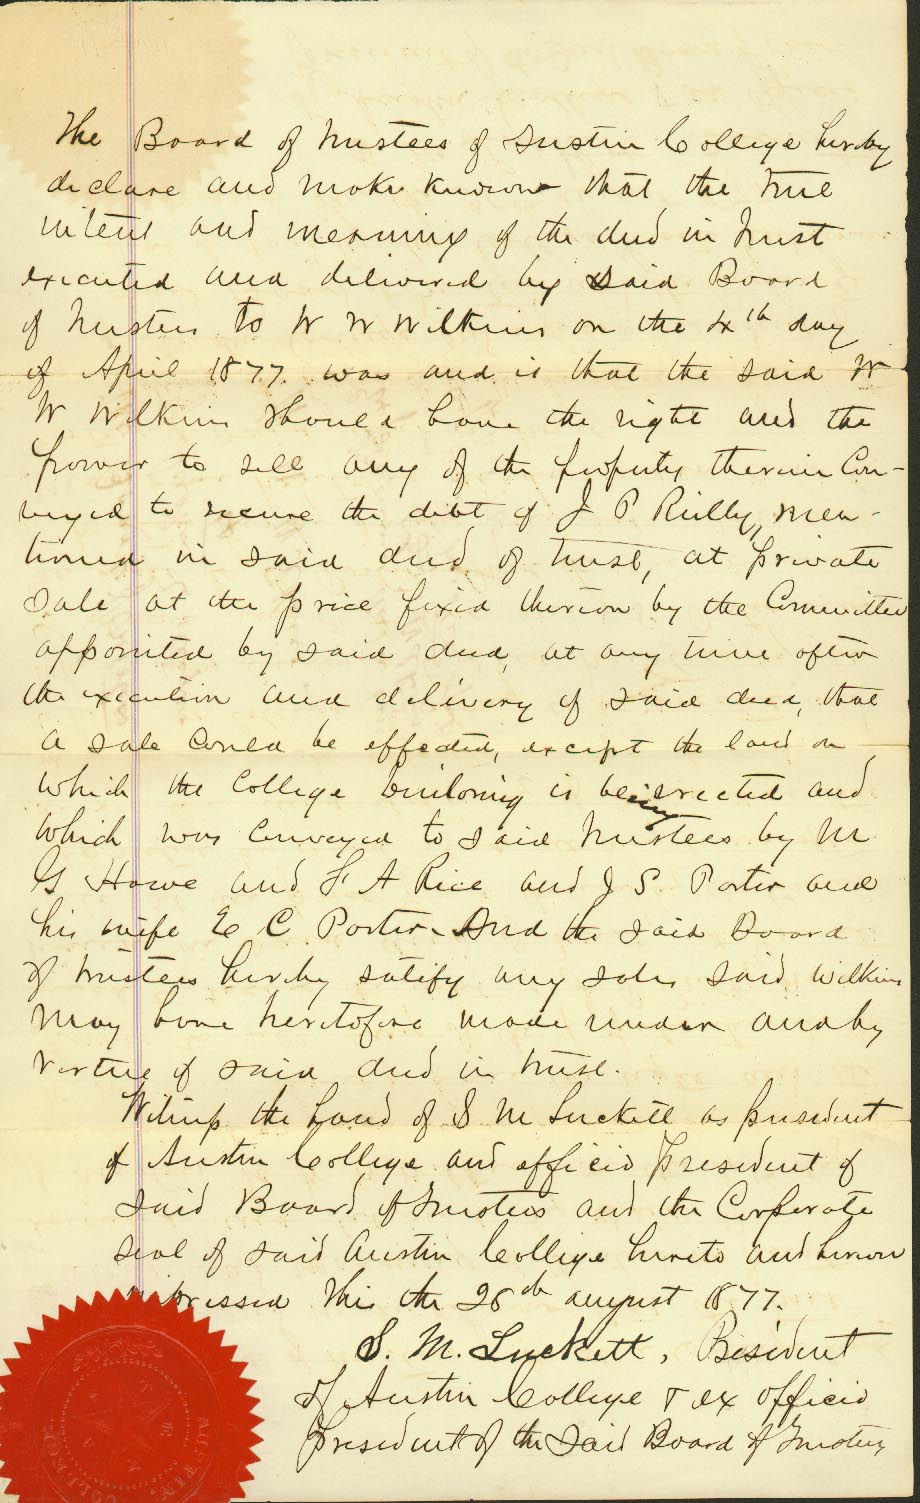 The Board of Trustees of Austin College hereby
declare and make known that the true
intent and meaning of the deed in trust
executed and delivered by said Board
of Trustees to W W Wilkins on the 4th day
of April 1877. was and is that the said W
W Wilkins should have the right and the
power to sell any of the property therein Con-
veyed to secure the debt of J P Reilly, men-
tioned in said deed of trust, at private
Sale at the price fixed thereon by the Committee
appointed by said deed, at any time after
the execution and delivery of said deed, that
a sale could be effected, except the land on
which the College building is being erected and
which was conveyed to said trustees by M
G Howe and F A Rice and J S. Porter and
his wife E C Porter. And the said Board
of trustees hereby ratify any sale said Wilkins
may have heretofore made under and by
virtue of said deed in trust.
Witness the hand of S M Luckett as president
of Austin College and officio President of
said Board of Trustees and the Corporate
seal of said Austin College hereto and hereon
impressed this the 28th august 1877.
S. M. Luckett, President
of Austin College & ex officio
President of the Said Board of Trustees
AUSTIN COLLEGE